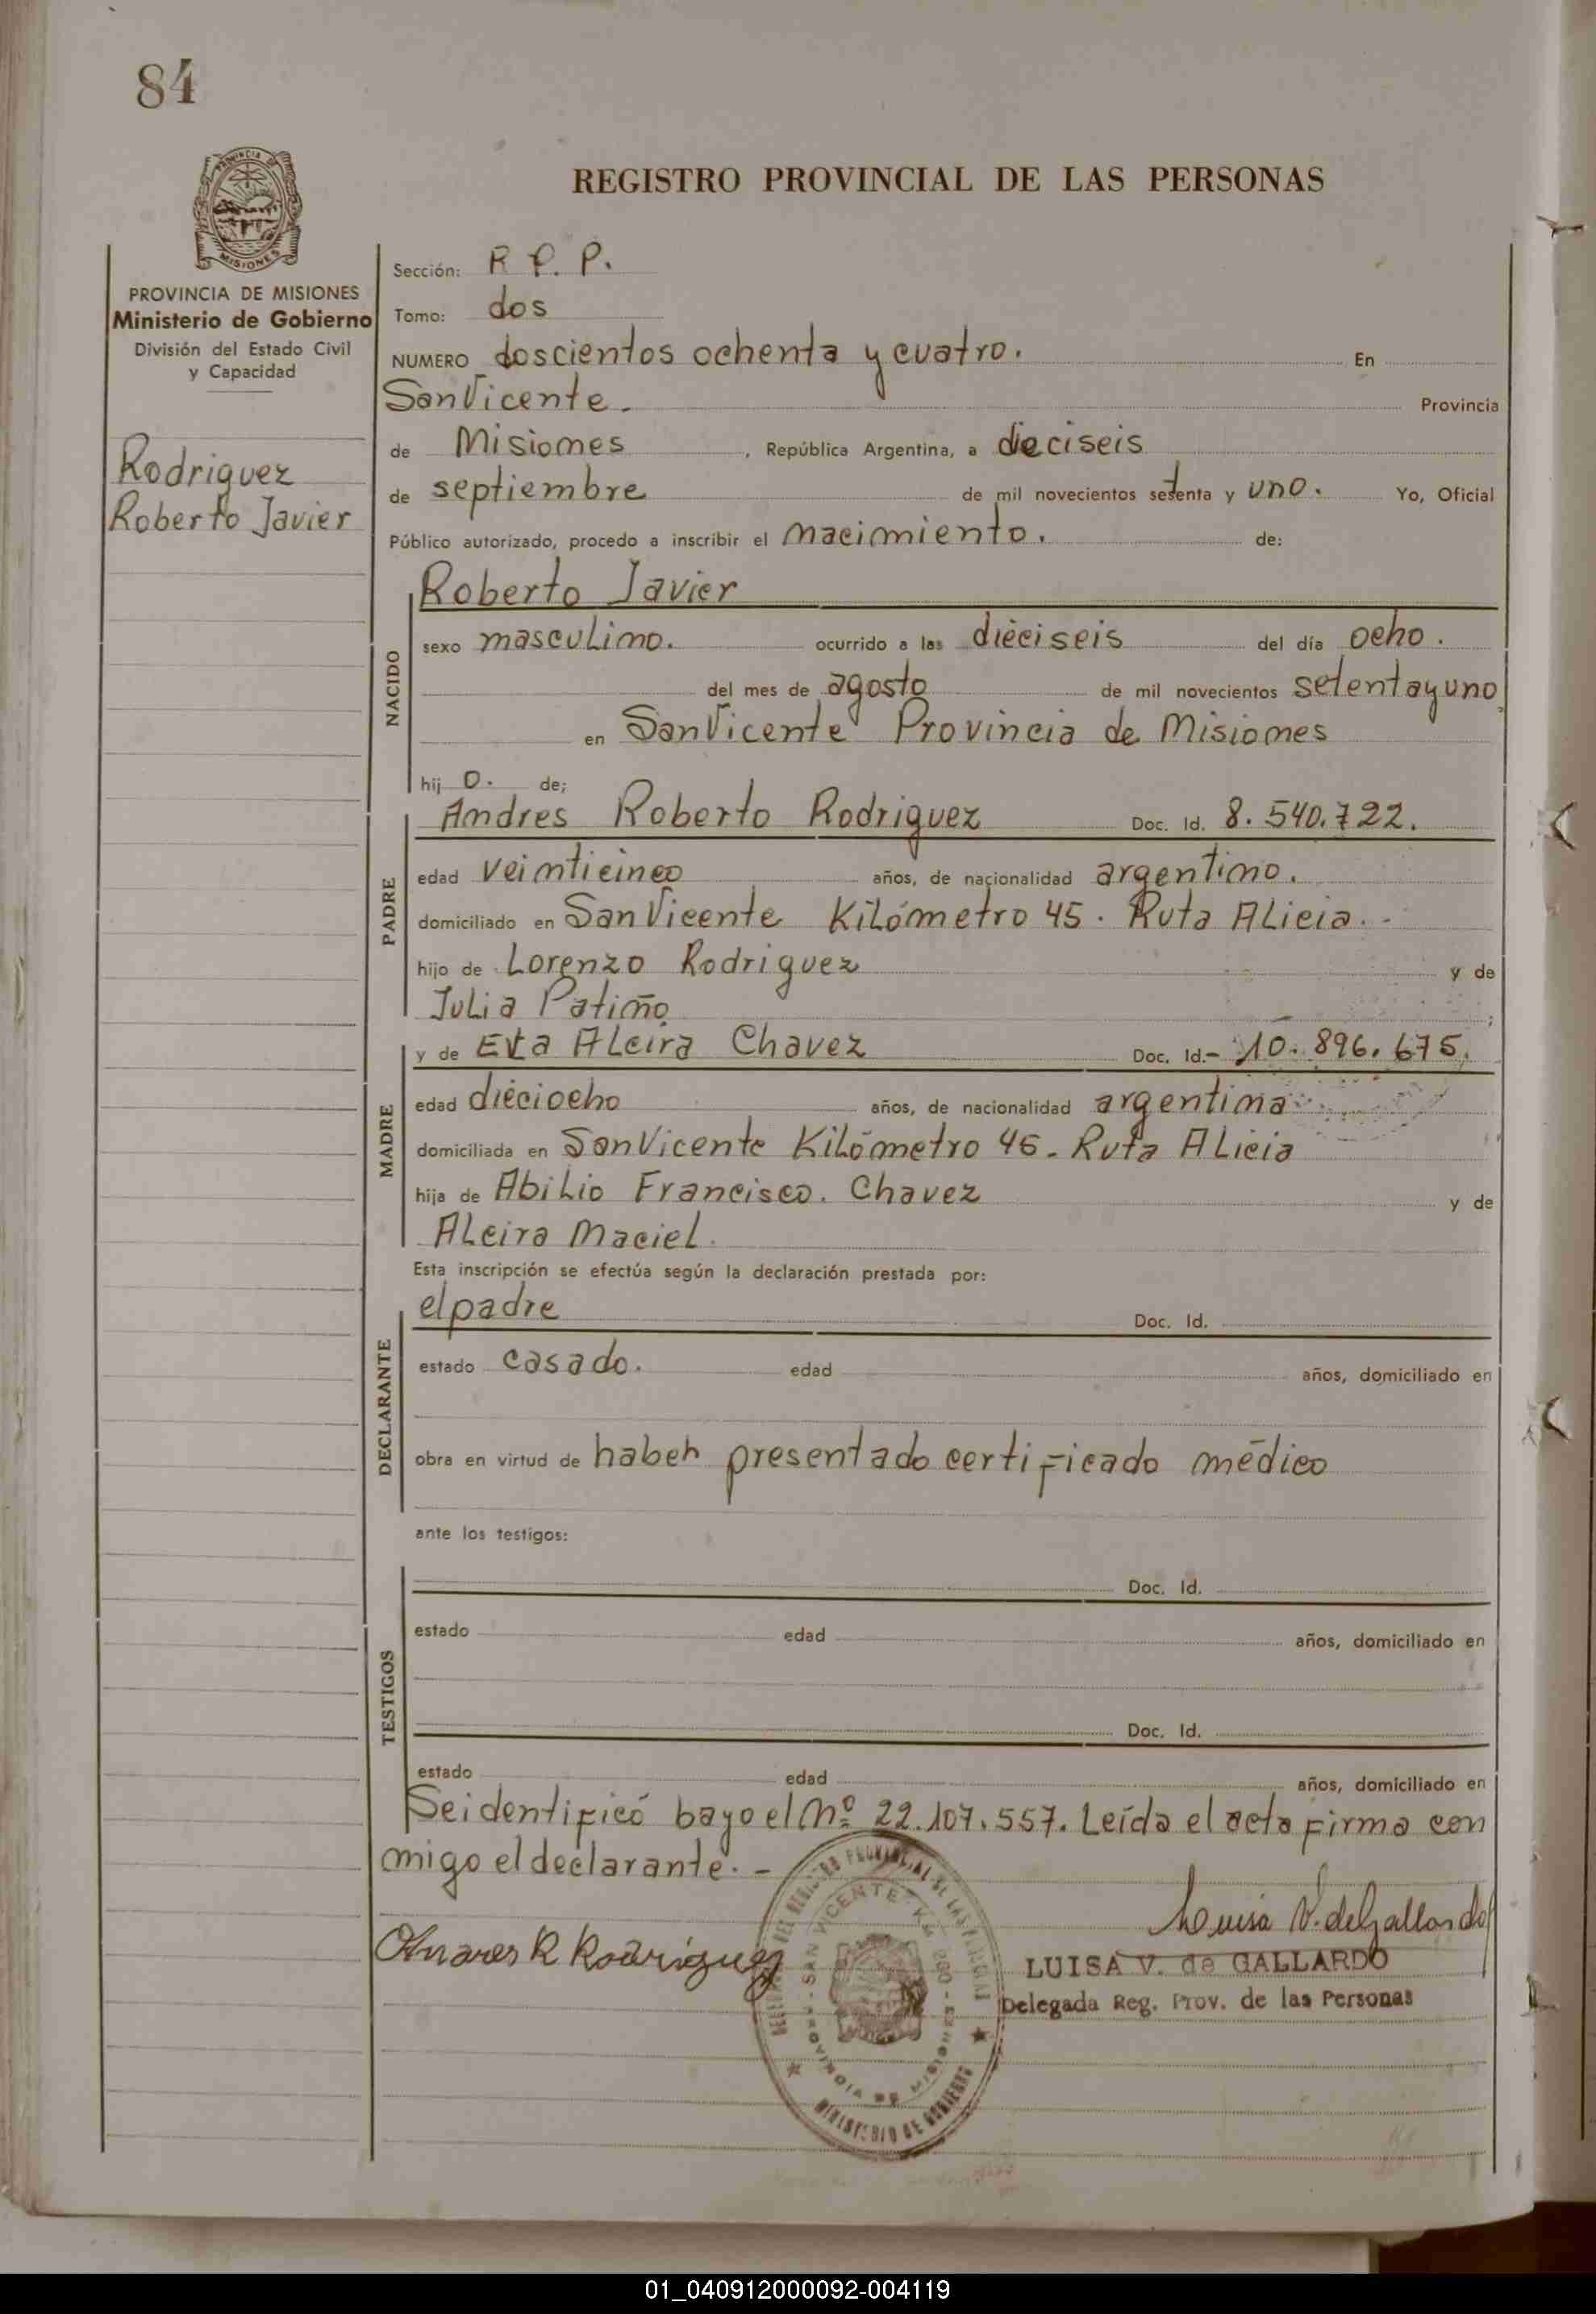 84
PROVINCIA DE
MISIONES
REGISTRO PROVINCIAL DE LAS PERSONAS
PROVINCIA DE MISIONES
Ministerio de Gobierno
División del Estado Civil
y Capacidad
Rodriguez
Roberto Javier
Sección: R P. P.
Tomo: dos
NUMERO doscientos ochenta y cuatro. En
San Vicente. Provincia
de Misiones, República Argentina, a dieciseis
de septiembre de mil novecientos setenta y uno. Yo, Oficial
Público autorizado, procedo a inscribir el nacimiento. de:
NACIDO
Roberto Javier
sexo masculino. ocurrido a las dieciseis del día ocho.
del mes de agosto de mil novecientos setenta y uno
en San Vicente Provincia de Misiones
hij o. de;
PADRE
Andres Roberto Rodriguez Doc. Id. 8.540.722.
edad veinticinco años, de nacionalidad argentino.
domiciliado en San Vicente Kilómetro 45. Ruta Alicia. -
hijo de Lorenzo Rodriguez y de
Julia Patiño;
MADRE
y de Eva Alcira Chavez Doc. Id.- 10.896.675.
edad dieciocho años, de nacionalidad argentina
domiciliada en San Vicente Kilómetro 45. Ruta Alicia
hija de Abilio Francisco. Chavez y de
Alcira Maciel.
Esta inscripción se efectúa según la declaración prestada por:
DECLARANTE
el padre Doc. Id.
estado casado. edad años, domiciliado en
obra en virtud de haber presentado certificado médico
ante los testigos:
TESTIGOS
Doc. Id.
estado edad años, domiciliado en
Doc. Id.
estado edad años, domiciliado en
Se identificó bayo el Nº 22.107.557. Leída el acta firma con
migo el declarante. -
Andres R Rodriguez
Luisa V. de Gallardo
LUISA V. de GALLARDO
Delegada Reg. Prov. de las Personas
REGISTRO PROVINCIAL DE LAS PERSONAS
SAN VICENTE
PROVINCIA DE MISIONES
MINISTERIO DE GOBIERNO
01_040912000092-004119